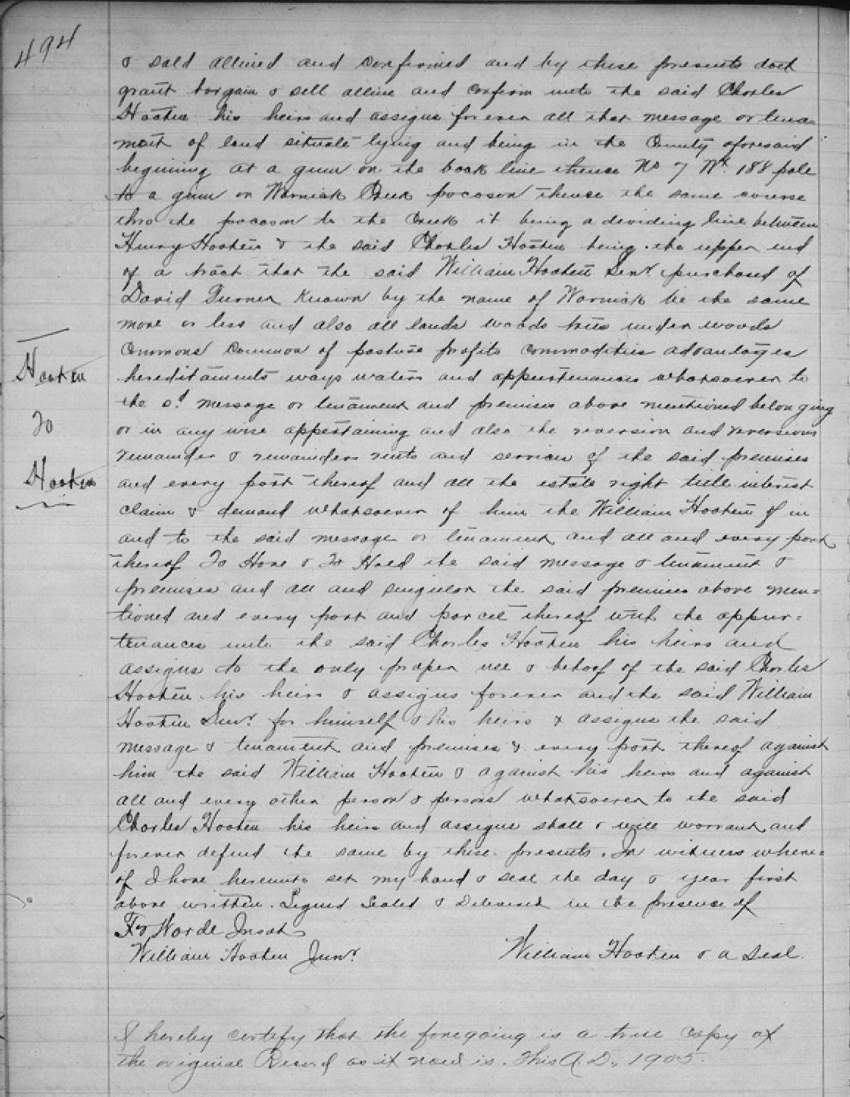 494
& sold aliened and confirmed and by these presents doth
grant bargain & sell aliene and confirm unto the said Charles
Hooten his heirs and assigns forever all that message or tena-
ment of land situate lying and being in the County aforesaid
begining at a gum on the back line thence No 7 Wt. 188 pole
to a gum on Warnick Creek pocoson thence the same course
thro the pocoson to the Creek it being a deviding line between
Henry Hooten & the said Charles Hooten being the upper end
of a tract that the said William Hooten Senr. purchased of
David Turner known by the name of Warnick be the same
more or less and also all lands woods trees under woods
Commons Common of pasture profits commodities advantages
hereditaments ways waters and appurtenances whatsoever to
the sd. message or tenament and premises above mentioned belonging
or in any wise appertaining and also the reversion and reversions
remainder & remainders rents and services of the said premises
and every part thereof and all the estate right title interest
claim & demand whatsoever of him the William Hooten of in
and to the said message or tenament and all and every part
thereof To Have & To Hold the said message & tenament &
premises and all and singular the said premises above men=
tioned and every part and parcel thereof with the appur=
tenances unto the said Charles Hooten his heirs and
assigns to the only proper use & behoof of the said Charles
Hooten his heirs & assigns forever and the said William
Hooten Senr. for himself & his heirs & assigns the said
message & tenament and premises & every part thereof against
him the said William Hooten & against his heirs and against
all and every other person & persons whatsoever to the said
Charles Hooten his heirs and assigns shall & will warrant and
forever defend the same by these presents. In witness where=
of I have hereunto set my hand & seal the day & year first
above written. Signed Sealed & Delivered in the presence of
Worde
William Hooten Junr.
William Hooten & a Seal.
Hooten
To
Hooten
I hereby certify that the foregoing is a true copy of
the original Record as it now is. This A.D. 1905.